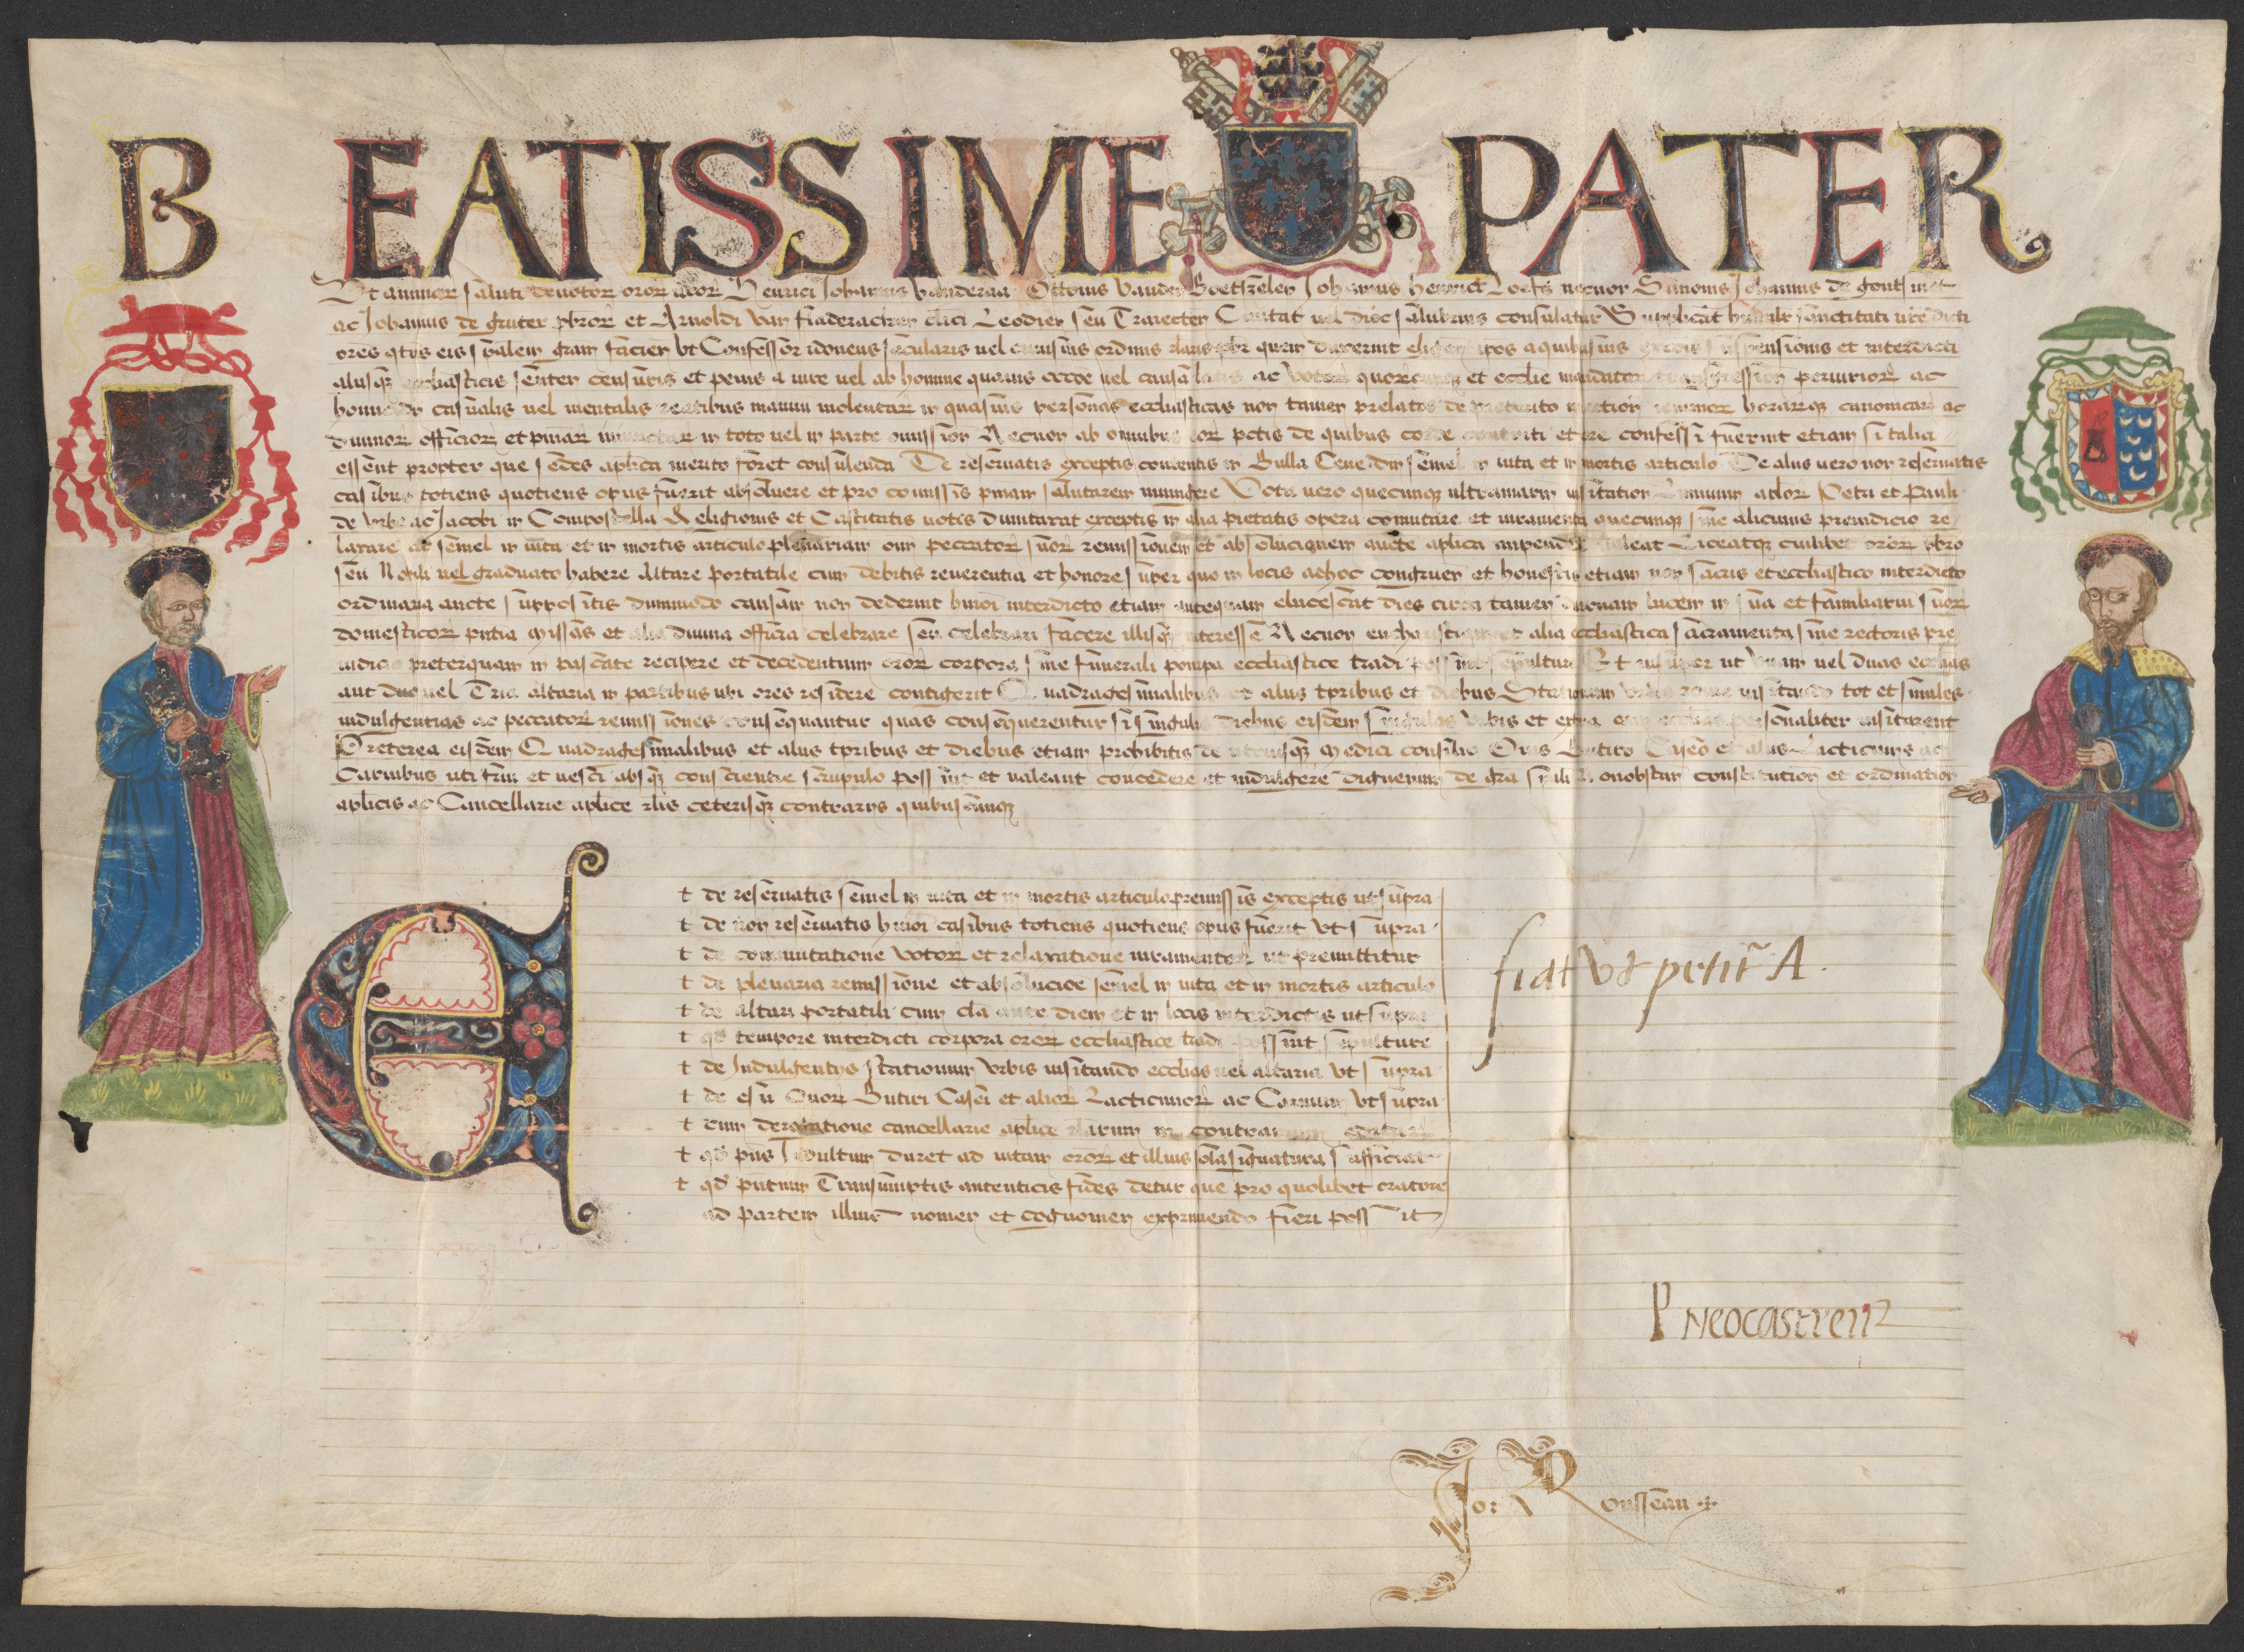 BEATISSIME PATER
Ut animar saluti devotor oror vror Henrici Johannis vanderaa Ottonis vander Boetszeler Johannis Henrici Loefs necnor Simonis Johannis de gont
ac Johannis de gruter pbror et Arnoldi van clici Leodien seu Traiecten Civitat vel dioc salubrius consulatur Supplicat humilr sanctitati vre dicti
ores qtus eis spalem gram facien ut Confessor idoneus secularis vel cuiusvis ordinis rlaris quem duxerint eligen ipos a quibusvis suspensionis et interdicti
aliisq ecclesiasticis senten censuris et penis a iure vel ab homine quavis occoe vel causa latis ac votor quorcunq et ecclie mandator transgression periurior ac
homicidr casualis vel mentalis reatibus manuu violentar in quasvis personas ecclesiasticas non tamen prelatos de preterito horarq canonicar ac
divinor officior et pniar in toto vel in parte omission Necnon ab omnibus eor pctis de quibus corde contriti et ore confessi fuerint etiam si talia
essent propter que sedes aplica merito foret consulenda De reservatis exceptis contentis in Bulla Cene dni semel in vita et in mortis articulo De aliis vero non reservatis
casibus totiens quotiens opus fuerit absolvere et pro comissis pniam salutarem iniungere Vota vero quecunq ultramarin visitation Liminum aplor Petri et Pauli
de Urbe ac Jacobi in Compostella Religionis et Castitatis votis dumtaxat exceptis in alia pietatis opera comutare et iuramenta quecunq sine alicuius preiudicio re/
laxare ac semel in vita et in mortis articulo plenariam om peccator suor remissionem et absolucionem aucte aplica impendere valeat Liceatq cuilibet oror pbro
seu Nobili vel graduato habere Altare portatile cum debitis reverentia et honore super quo in locis ad hoc congruen et honestis etiam non sacris et ecclesiastico interdicto
ordinaria aucte suppositis dummodo causam non dederint hmoi interdicto etiam antequam elucescat dies circa tamen diurnam lucem in sua et familiarium suor
domesticor pntia missas et alia divina officia celebrare seu celebrari facere illisq interesse Necnon eucharistiam et alia ecclesiastica sacramenta sine rectoris pre/
iudicio preterquam in pascate recipere et decedentium oror corpora sine funerali pompa ecclesiastice tradi possint sepulture Et insuper ut unam vel duas ecclias
aut duo vel Tria altaria in partibus ubi ores residere contigerit Quadragesimalibus et aliis tpribus et diebus Stationum urbis rome visitando tot et similes
indulgentias ac peccator remissiones consequantur quas consequerentur si singulis diebus eisdem singulas urbis et extra eam ecclias personaliter visitarent
Preterea eisdem Quadragesimalibus et aliis tpribus et diebus etiam prohibitis de utriusq medici consilio Ovis Butiro Caseo et aliis Lacticiniis ac
Carnibus uti frui et vesci absq conscientie scrupulo possint et valeant concedere et indulgere dignemini de gra spali Nonobstan constitution et ordination
aplicis ac Cancellarie aplice rlis ceterisq contrariis quibuscunq
Et de reservatis semel in vita et in mortis articulo premissis exceptis ut supra
t de non reservatis hmoi casibus totiens quotiens opus fuerit ut supra
t de commutatione votor et relaxatione iuramentor ut premittitur
t de plenaria remissione et absolucioe semel in vita et in mortis articulo
t de altari portatili cum cla ante diem et in locis interdictis ut supra
t qd tempore interdicti corpora oror ecclesiastice tradi possint sepulture
t de Indulgentiis stationum urbis visitando ecclias vel altaria ut supra
t de esu Ovor Butiri Casei et alior Lacticinior ac Carnium ut supra
t cum derogatione cancellarie aplice rlarum in contrarium
t qd pns Indultum duret ad vitam oror et illius sola signatura sufficiat
t qd pntium Transumptis autenticis fides detur que pro quolibet oratore
ad partem illius nomen et cognomen exprimendo fieri possit
fiat ut petitr A
P Neocastren
Jo: Rousseau